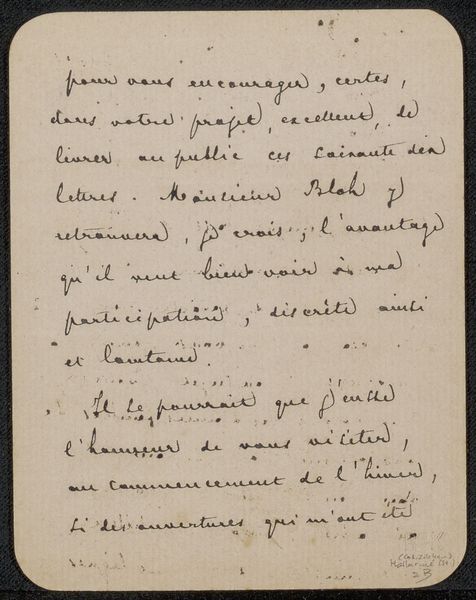 pour vous encourager, certes,
dans votre projet, excellent, de
livrer au public ces soixante dix
lettres. Monsieur Blok y
retrouvera, je crois, l'avantage
qu'il veut bien voir à ma
participation, discrète ainsi
et lointaine.
Il se pourrait que j'eusse
l'honneur de vous visiter,
au commencement de l'hiver,
si des ouvertures qui m'ont été
2B